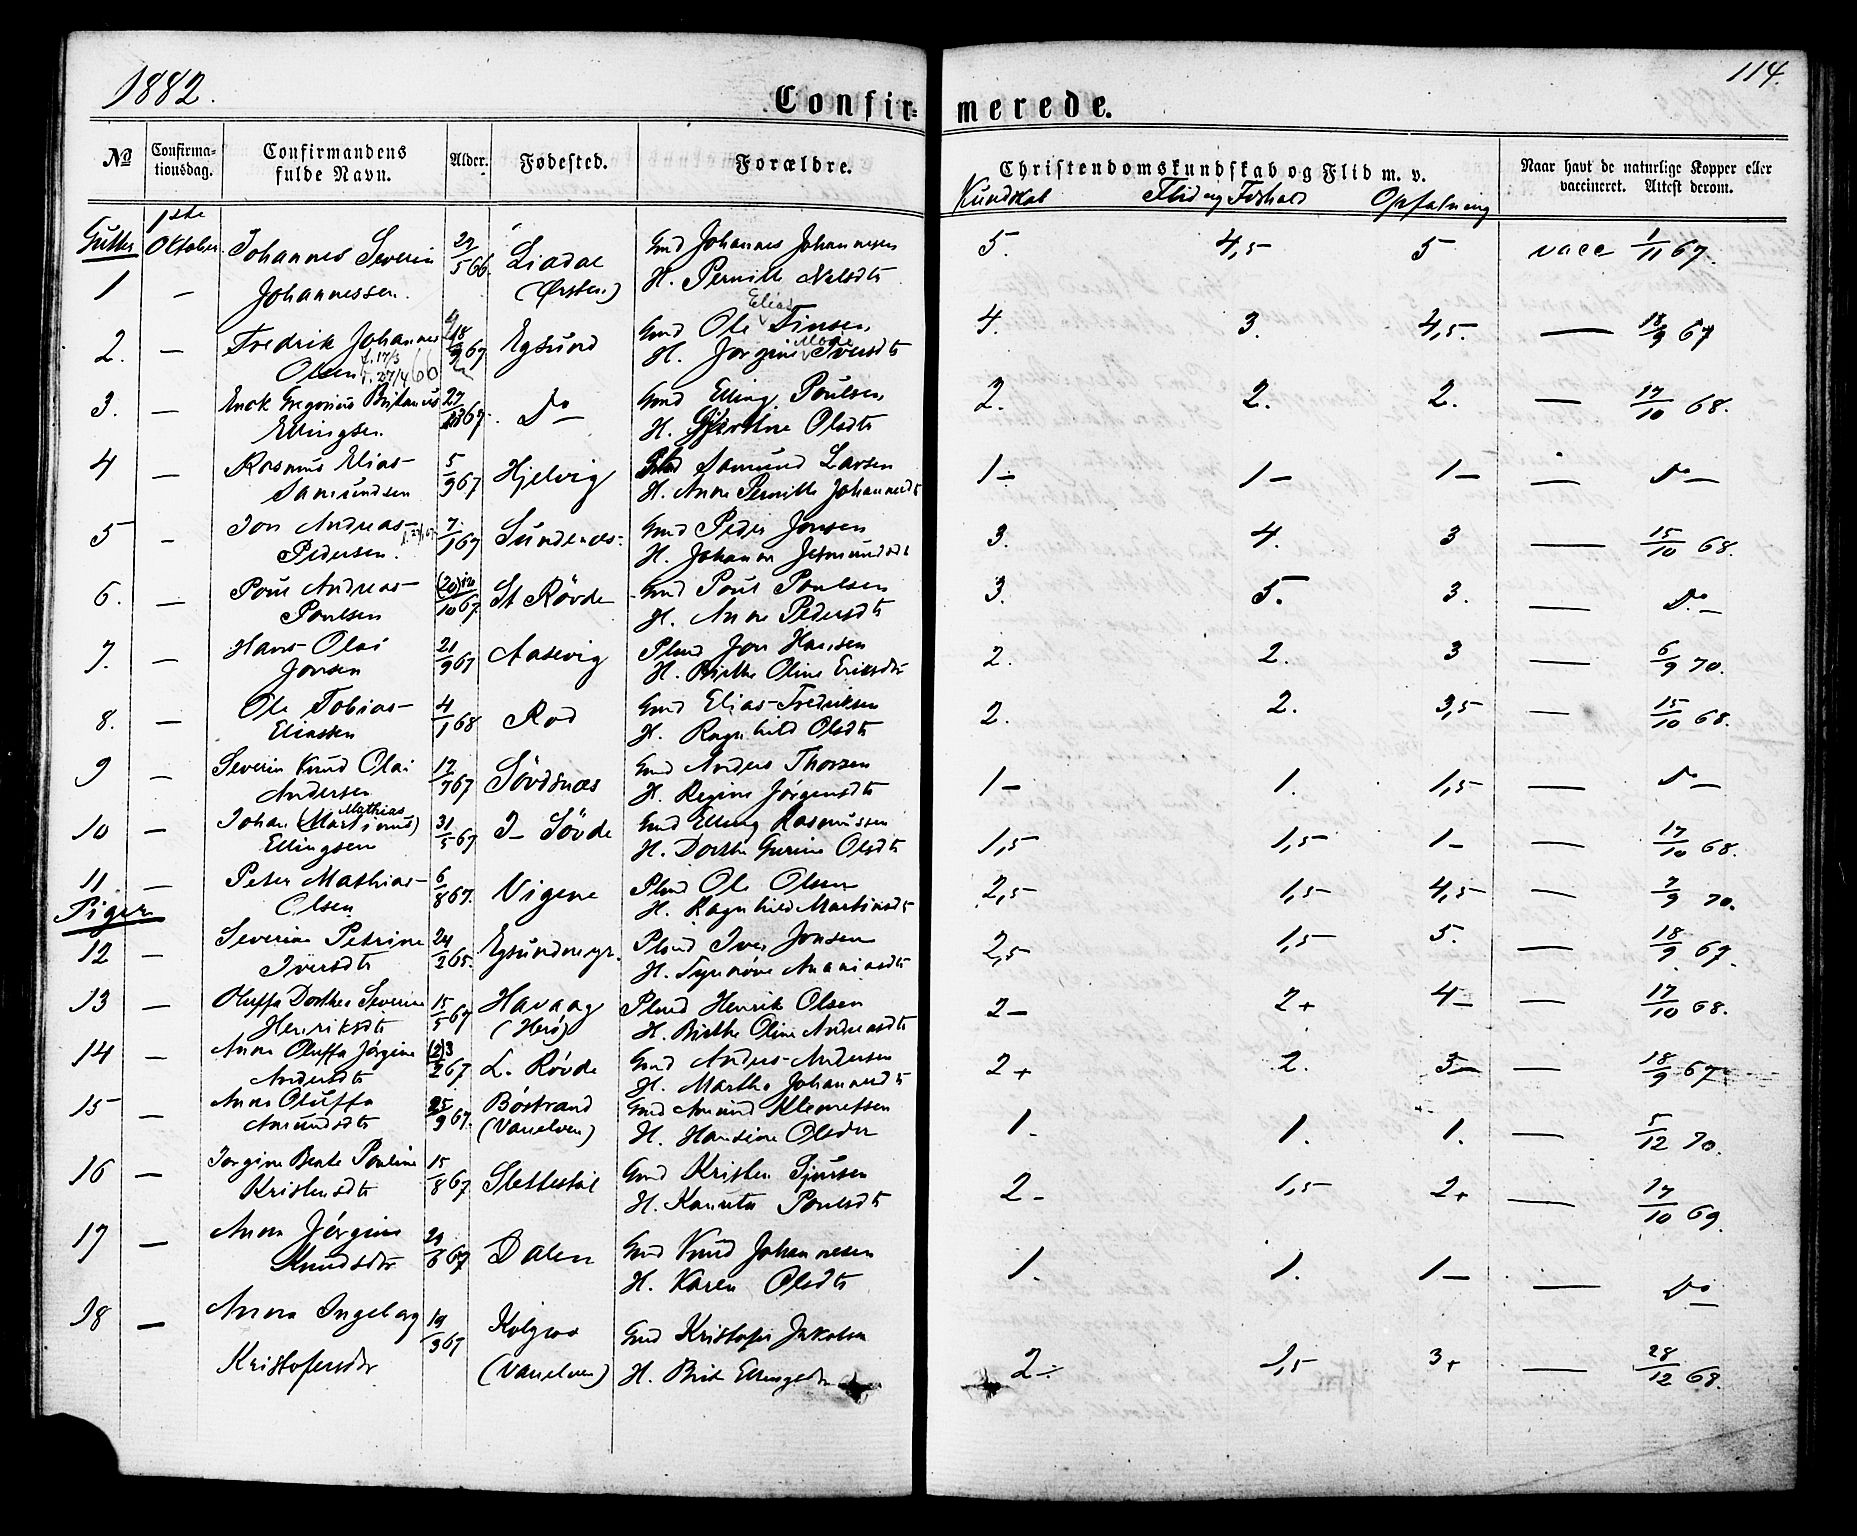 1882.
114.
Confirmerede.
No
Confirmationsdag.
Confirmandens fulde Navn.
Alder.
Fødested.
Forældre.
Christendomskundskab og Flid m. v.
Naar havt de naturlige Kopper eller vaccineret. Attest derom.
Kundskab Flid og Forhold Opfatning
Gutter 1ste Oktober Johannes Severin 5 66 Liadal Gmd Johannes Johannesen 5. 4,5 5 vacc 1/11 67.
1 — Johannessen. (Ørsten) H. Pernille Nilsdtr
2. — Fredrik Johannes 18/9 67 Egsund Gmd Ole Elias Finsen 4. 3. 4,5. — 18/9 67
Olsen f. 17/3 27/4 66 H. Jørgine Iversdtr
3. — Gregorius Ellingsen 67. Do — Gmd Elling Poulsen 2. 2. 2. — 17/10 68.
H. Olsdtr
4 — Rasmus Elias 5/9 67 Hjelvig Samund Larsen 1 — 1 — 1 — — Do —
Samundsen H. Anne Pernille Johannesdtr
5 — Jon Andreas 7/1 67 Sundenes Gmd Peder Jonsen 3. 4. 3 — 15/10 68.
Pedersen. H. Johanne
6. — Poul Andreas (20) 10 67 St Røvde Gmd Poul Poulsen 3. 5. 3. — Do —
Poulsen H. Anne Pedersdtr
7. — Hans Olai 21/9 67 Aasevig Plmd Jon Hansen 2. 2. 3 — 6/9 70.
Jonsen H. Birthe Oline Eriksdtr
8. — Ole Tobias 4/1 68 Rod Gmd Elias Fredriksen 2. 2. 3,5 — 15/10 68.
Eliassen H. Ragnhild Olsdtr
9 — Severin Knud Olai 17/7 67 Sövdsnæs Gmd Anders Thorsen 1 — 1. 1,5 — Do —
Andersen H. Regine Jørgensdtr
10 — Johan (Martinus) Mathias 31/5 67 I — Sövde Gmd Elling Rasmussen 1,5 1,5 1 — — 17/10 68.
Ellingsen H. Dorthe Gurine Olsdtr
11. — Peter Mathias 6/8 67. Vigene Plmd Ole Olsen 2,5 1,5 4,5 — 7/9 70.
Piger Olsen H. Ragnhild Martinsdtr
12 — Severine Petrine 24/2 65. Egsundneyr. Plmd Iver Jonsen 2,5 1,5 5. — 18/9 67.
Iversdtr H. Synnøve Ananiasdtr
13 — Oluffa Dorthea Severine 15/5 67 Havaag Plmd Henrik Olsen 2 — 2+ 4 — — 17/10 68.
Henriksdtr (Herø) H. Birthe Oline Andreasdtr
14 — Anne Oluffa Jørgine (2)3/2 67 L. Røvde Gmd Anders Andersen 2+ 2. 3 — — 18/9 67.
Andersdtr H. Marthe Johannesdtr
15 — Anne Oluffa 25/9 67. Böstrand Gmd Amund Klemetsen 1 — 1. 1. — 5/12 70.
Amundsdtr (Vanelven) H. Hansine Olsdtr
16 — Jorgine Bente Pouline 15/8 67 Slettestøl Gmd Kristen Sjursen 2 — 1,5 2+ — 17/10 69.
Kristensdtr H. Poulsdtr
17 — Anne Jørgine 6 67 Dalen Gmd Knud Johannesen 1. 1. 1 — — Do —
Knudsdtr H. Karen Olsdtr
18 — Anna Ingeborg 19/3 67 Gmd Kristofer Jakobsen 2 — 1,5 3+ — 28/12 68.
Kristofersdtr (Vanelven) H. Brit Ellingsdtr